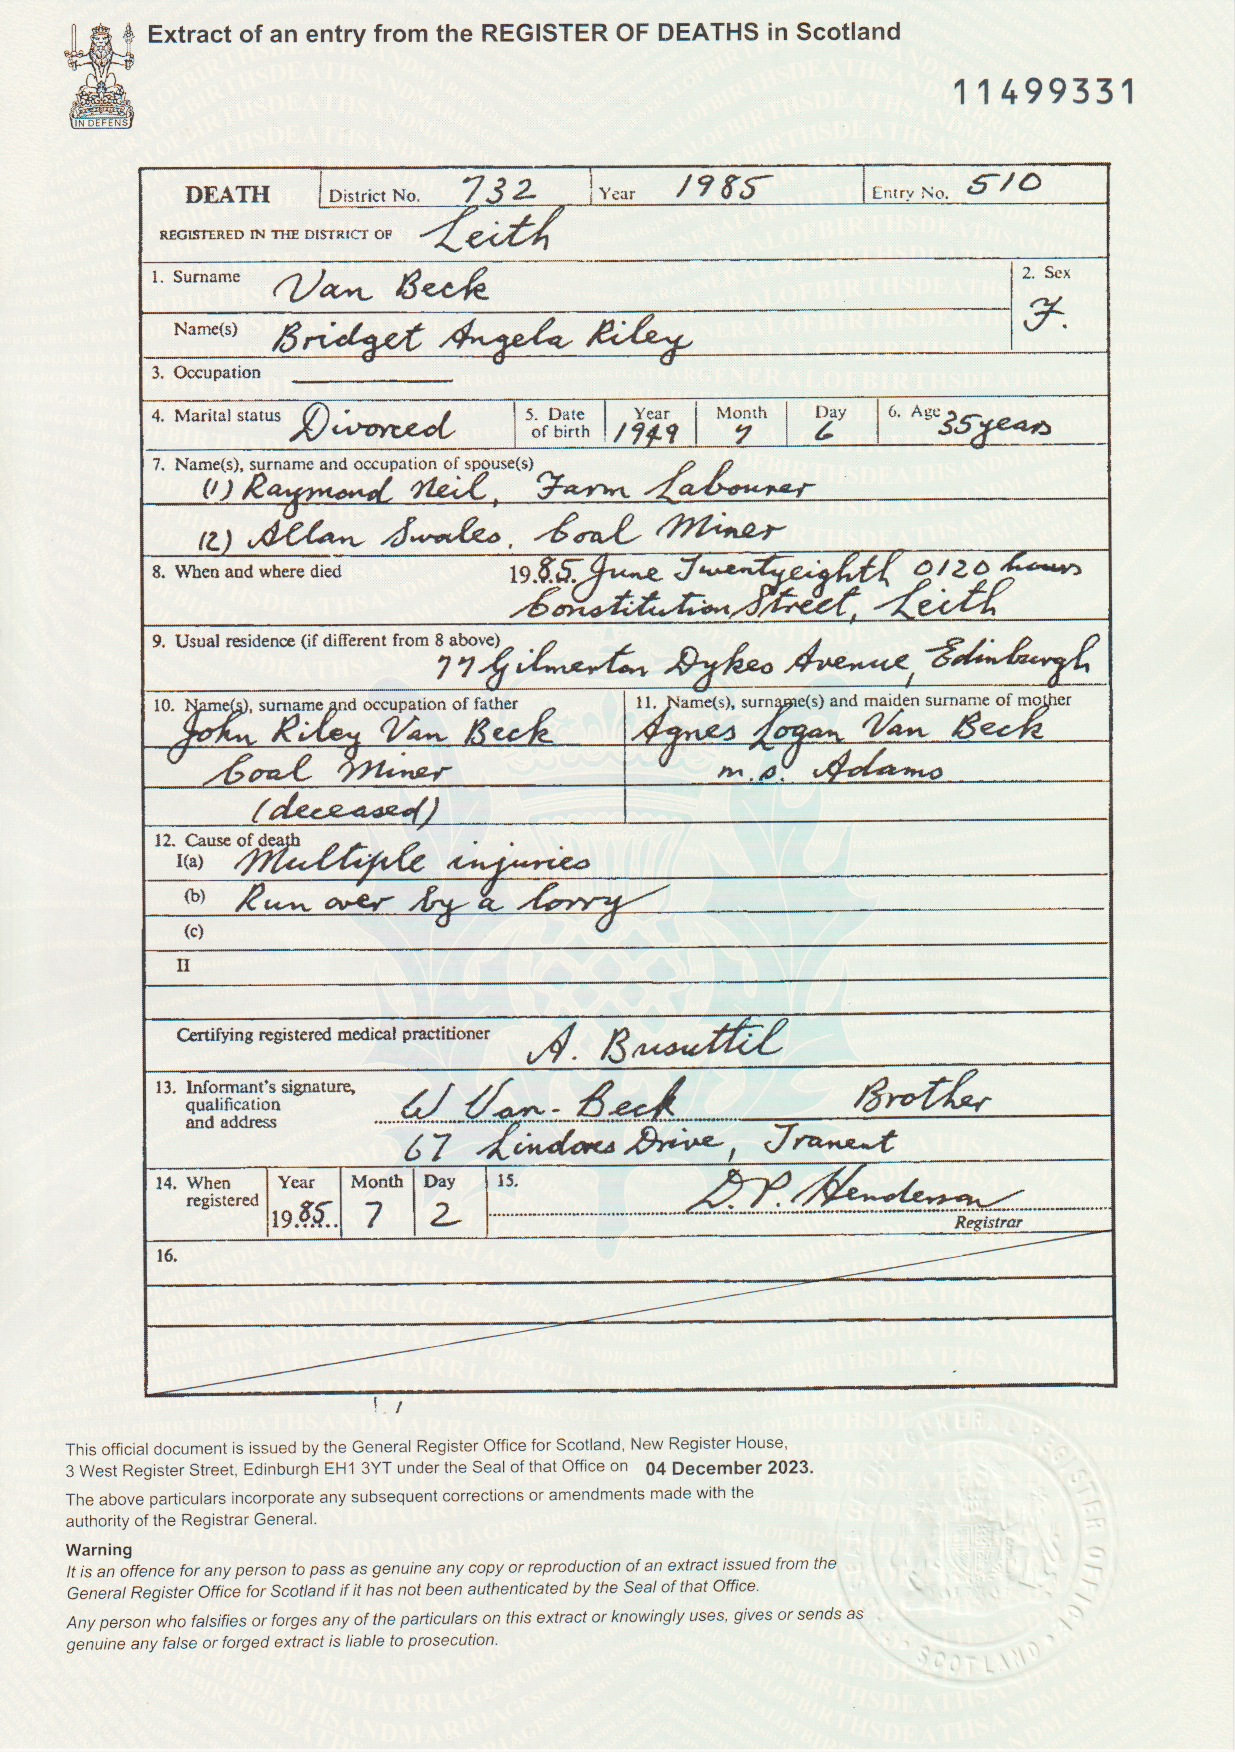 Extract of an entry from the REGISTER OF DEATHS in Scotland
IN DEFENS
11499331
DEATH District No. 732 Year 1985 Entry No. 510
REGISTERED IN THE DISTRICT OF Leith
1. Surname Van Beck 2. Sex
Name(s) Bridget Angela Riley F.
3. Occupation
4. Marital status Divorced 5. Date of birth Year 1949 Month 7 Day 6 6. Age 35 years
7. Name(s), surname and occupation of spouse(s)
(1) Raymond Neil, Farm Labourer
(2) Allan Swales, Coal Miner
8. When and where died 1985. June Twentyeighth 0120 hours
Constitution Street, Leith
9. Usual residence (if different from 8 above)
77 Gilmerton Dykes Avenue, Edinburgh
10. Name(s), surname and occupation of father
John Riley Van Beck
Coal Miner
(deceased)
11. Name(s), surname(s) and maiden surname of mother
Agnes Logan Van Beck
m.s. Adams
12. Cause of death
I(a) Multiple injuries
(b) Run over by a lorry
(c)
II
Certifying registered medical practitioner A. Busuttil
13. Informant's signature, qualification and address
W Van-Beck Brother
67 Lindores Drive, Tranent
14. When registered Year 1985 Month 7 Day 2
15. D.P. Henderson
Registrar
16.
This official document is issued by the General Register Office for Scotland, New Register House,
3 West Register Street, Edinburgh EH1 3YT under the Seal of that Office on 04 December 2023.
The above particulars incorporate any subsequent corrections or amendments made with the
authority of the Registrar General.
Warning
It is an offence for any person to pass as genuine any copy or reproduction of an extract issued from the
General Register Office for Scotland if it has not been authenticated by the Seal of that Office.
Any person who falsifies or forges any of the particulars on this extract or knowingly uses, gives or sends as
genuine any false or forged extract is liable to prosecution.
SCOTLAND